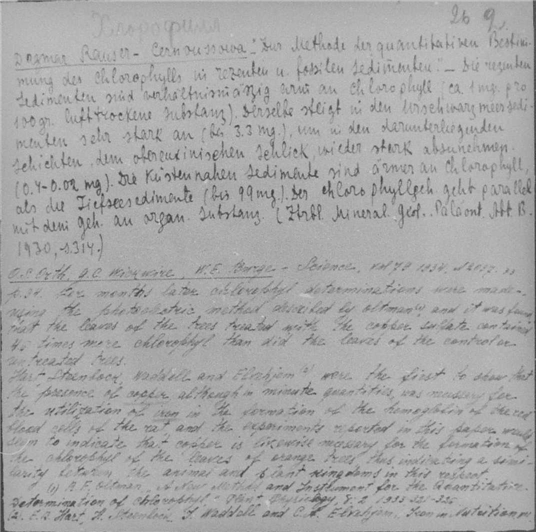 Хлорофилл
26 g
Dagmar Rauser-Cernoussowa "Zur Methode der quantitativen Bestim-
mung des Chlorophylls in rezenten u. fossilen Sedimenten." — Die rezenten
Sedimenten sind verhältnismässig arm an Chlorophyll (ca 1 mg. pro
100 gr. lufttrockene Substanz). Derselbe steigt in den Urschwarzmeersedi-
menten sehr stark an (bis 3.3 mg.), um in den darunterliegenden
Schichten, dem obereuxinischen Schlick, wieder stark abzunehmen.
(0.4-0.02 mg). Die Küstennahen Sedimente sind ärmer an Chlorophyll,
als die Tiefseesedimente (bis 99 mg). Der chlorophyllgeh. geht parallel
mit dem geh. an organ. Substanz. (Ztrbl Mineral. Geol. Paläont. Abt. B.
1930, S. 314.)
O.L. Orth, G.C. Wickwire, W.E. Burge - Science, vol 79 1934,
p. 34. four months later chlorophyl determinations were made
using the photoelectric method described by Oltman(1) and it was found
that the leaves of the trees treated with the copper sulfate contained
times more chlorophyl than did the leaves of the controler
untreated trees.
Hart Steenbock, Waddell and Elvehjem(2) were the first to show that
the presence of copper although in minute quantities, was necessary for
the utilization of iron in the formation of the hemoglobin of the red
blood cells of the rat and the experiments reported in this paper would
seem to indicate that copper is likewise necessary for the formation of
the chlorophyl of the leaves of orange trees thus indicating a simi-
larity between the animal and plant kingdoms in this respect.
(1) R.E. Oltman. A New Method and Instrument for the Quantitative
Determination of Chlorophyl. Plant Physiology, 8:2 1933 321-326
2. E.B. Hart, H. Steenbock, J. Waddell and C.A. Elvehjem, Journ. Nutrition